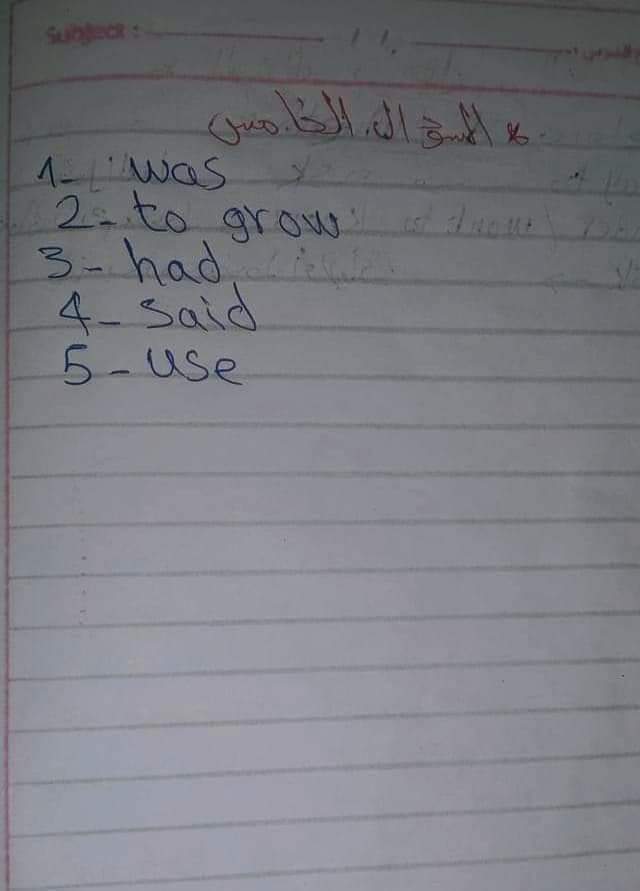 Subject :
* السؤال الخامس
1- was
2- to grow
3- had
4- said
5- use